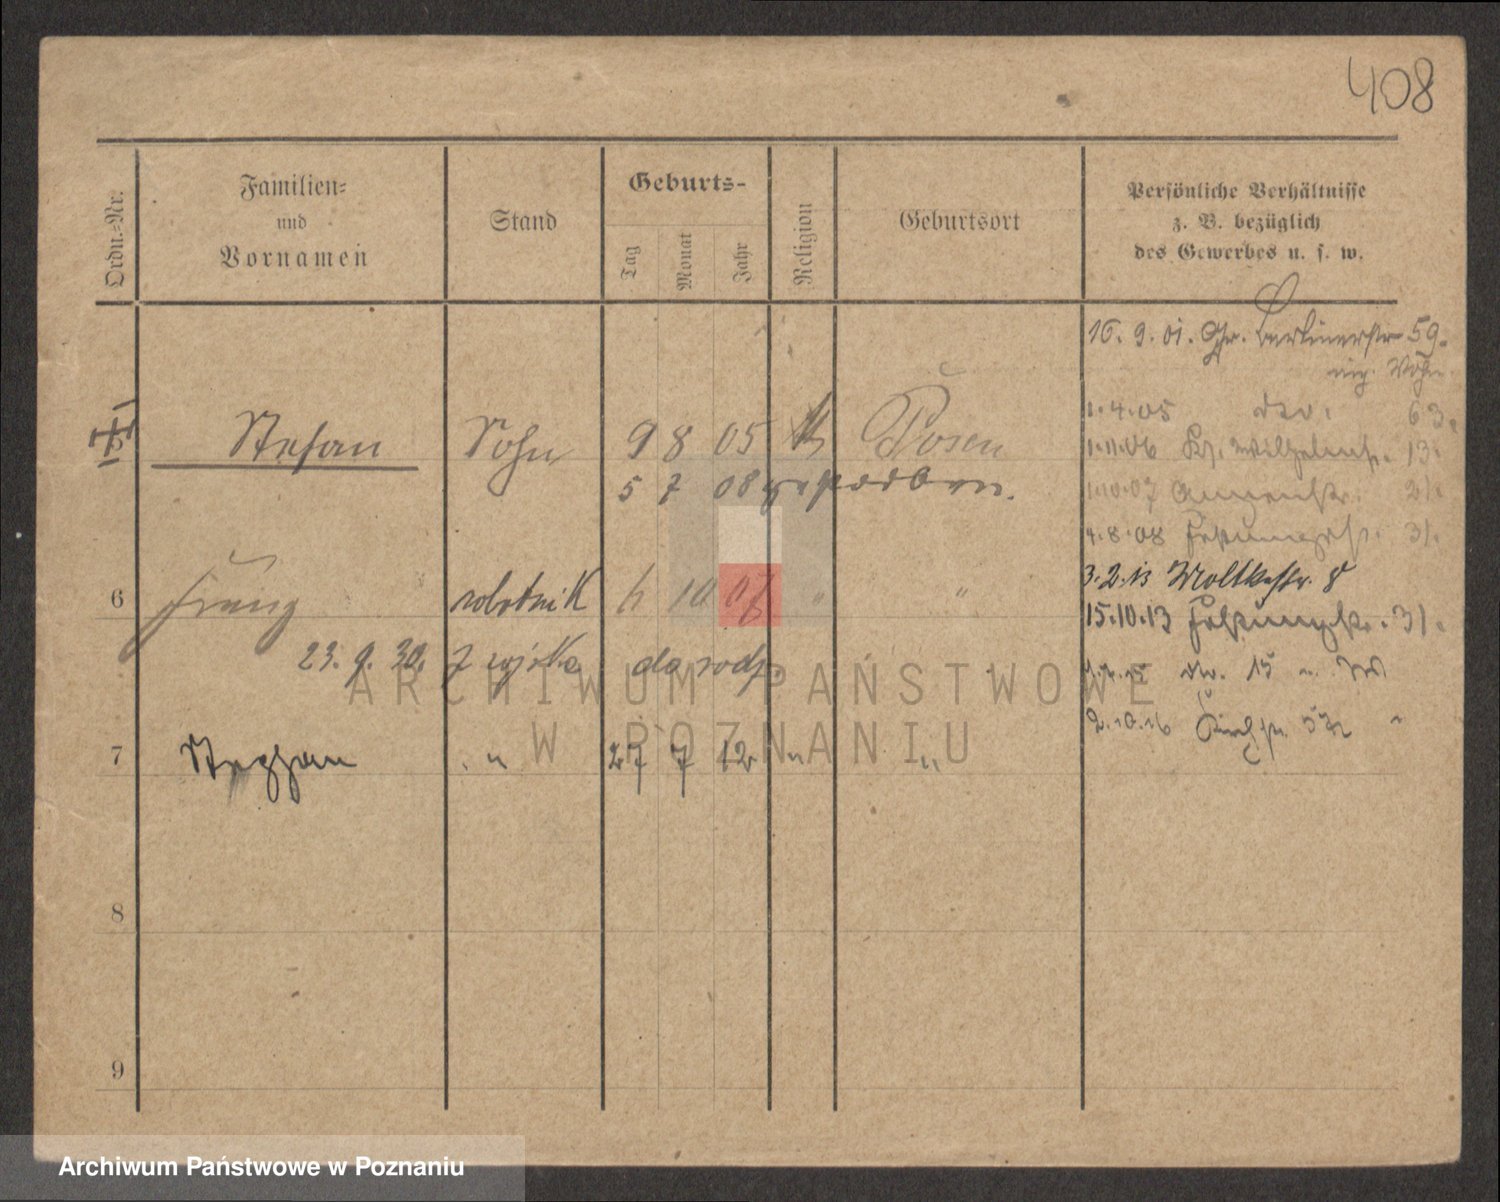 408
Ordn.-Nr.
Familien-
und
Vornamen
Stand
Geburts-
Tag
Monat
Jahr
Religion
Geburtsort
Persönliche Verhältnisse
z. B. bezüglich
des Gewerbes u. s. w.
16. 9. 01. Gr. Berlinerstr 59.
1.4.05 63.
5 Stefan Sohn 9 8 05 k Posen
1.11.06 Wilhelmstr. 13.
5 7 08 gestorben.
1.10.07 21.
4.8.08 Festungstr. 31.
3.2.13 Moltkestr. 8
6 Franz robotnik 6 10 07 " "
15.10.13 Festungstr. 31.
23. 9. 30. z wojska do rodz.
15
2.10.16
7 Stephan " 27 7 12 " "
8
9
ARCHIWUM PAŃSTWOWE
W POZNANIU
Archiwum Państwowe w Poznaniu